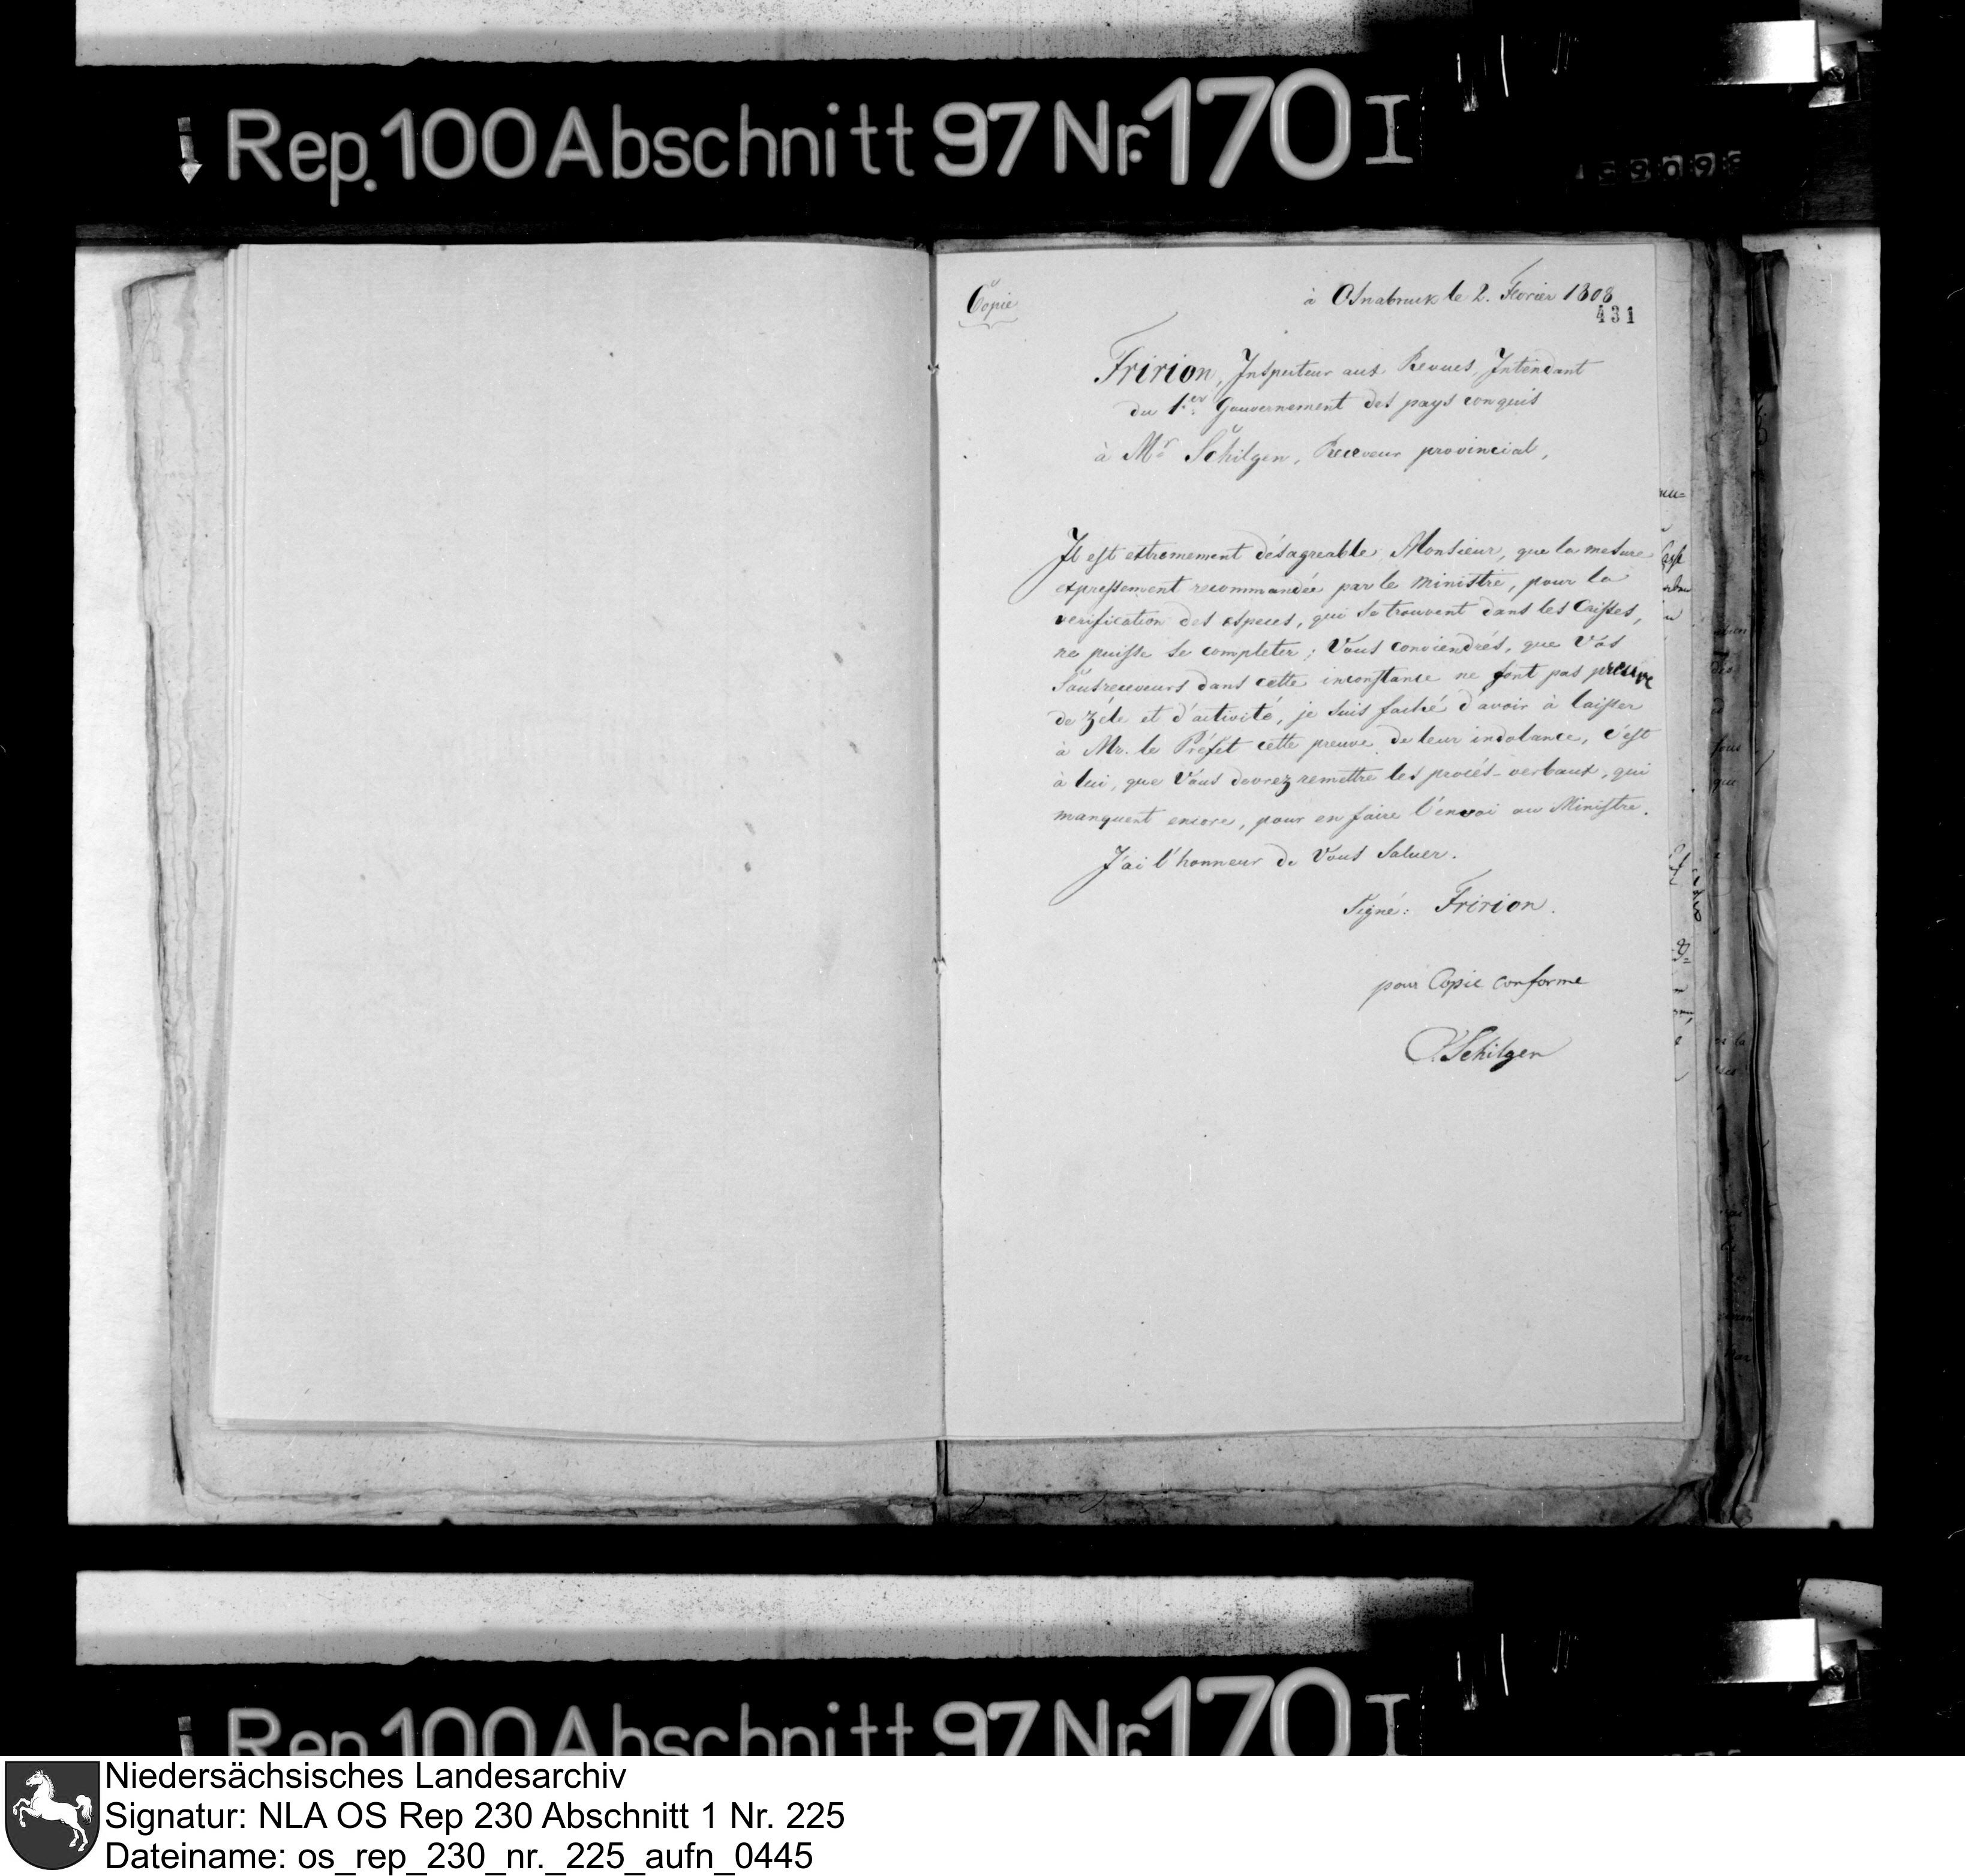 Rep. 100 Abschnitt 97 Nr. 170 I
Copie
à Osnabruck le 2. Fevrier 1808
431
Fririon, Inspecteur aux Revues, Intendant
du 1.er Gouvernement des pays conquis
à Mr Schilgen, Receveur provincial,
Il est extremement désagreable Monsieur, que la mesure
expressement recommandée par le ministre, pour la
verification des especes, qui se trouvent dans les Caisses,
ne puisse se completer; Vous conviendrés, que Vos
Sousreceveurs dans cette inconstance ne font pas preuve
de zéle et d'activité, je suis faché d'avoir à laisser
à Mr. le Préfet cette preuve de leur indolance, c'est
à lui, que Vous devrez remettre les procés-verbaux, qui
manquent encore, pour en faire l'envoi au Ministre.
J'ai l'honneur de Vous Saluer.
Signé: Fririon.
pour Copie conforme
Schilgen
Rep. 100 Abschnitt 97 Nr. 170 I
Niedersächsisches Landesarchiv
Signatur: NLA OS Rep 230 Abschnitt 1 Nr. 225
Dateiname: os_rep_230_nr._225_aufn_0445